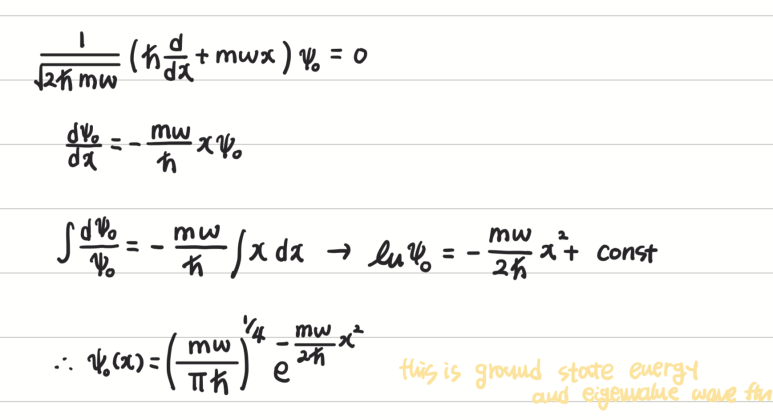 1/√(2ħmω) (ħ d/dx + mωx) ψ₀ = 0
dψ₀/dx = - mω/ħ xψ₀
∫ dψ₀/ψ₀ = - mω/ħ ∫ x dx → ln ψ₀ = - mω/2ħ x² + const
∴ ψ₀(x) = (mω/πħ)^1/4 e^(- mω/2ħ x²)
this is ground state energy
and eigenvalue wave